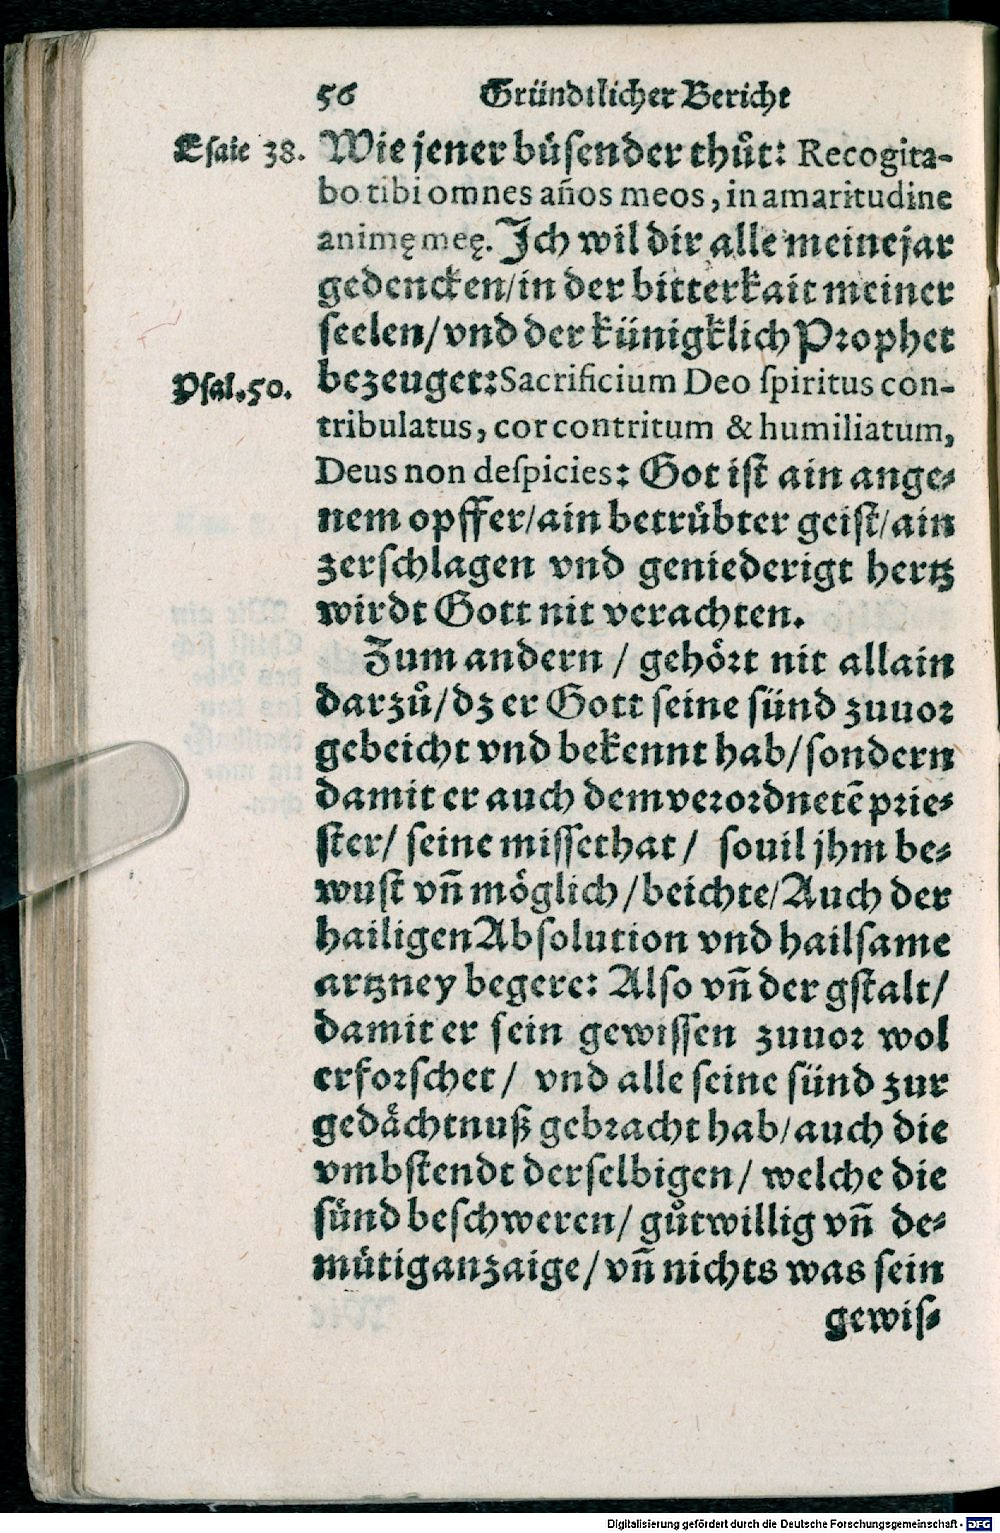 56 Gründtlicher Bericht
Esaie 38. Wie jener büsender thůt: Recogita-
bo tibi omnes años meos, in amaritudine
animę meę. Ich wil dir alle meine jar
gedencken/in der bitterkait meiner
seelen/vnd der künigklich Prophet
Psal.50. bezeuget: Sacrificium Deo spiritus con-
tribulatus, cor contritum & humiliatum,
Deus non despicies: Got ist ain ange-
nem opffer/ain betrübter geist/ain
zerschlagen vnd geniederigt hertz
wirdt Gott nit verachten.
Zum andern / gehört nit allain
darzů/dz er Gott seine sünd zuuor
gebeicht vnd bekennt hab/sondern
damit er auch dem verordnetē prie-
ster/ seine missethat / souil jhm be-
wust vñ möglich/beichte/Auch der
hailigen Absolution vnd hailsame
artzney begere: Also vñ der gstalt/
damit er sein gewissen zuuor wol
erforschet / vnd alle seine sünd zur
gedächtnuß gebracht hab/auch die
vmbstendt derselbigen/ welche die
sünd beschweren/ gůtwillig vñ de-
mütig anzaige/vñ nichts was sein
gewis-
Digitalisierung gefördert durch die Deutsche Forschungsgemeinschaft - DFG